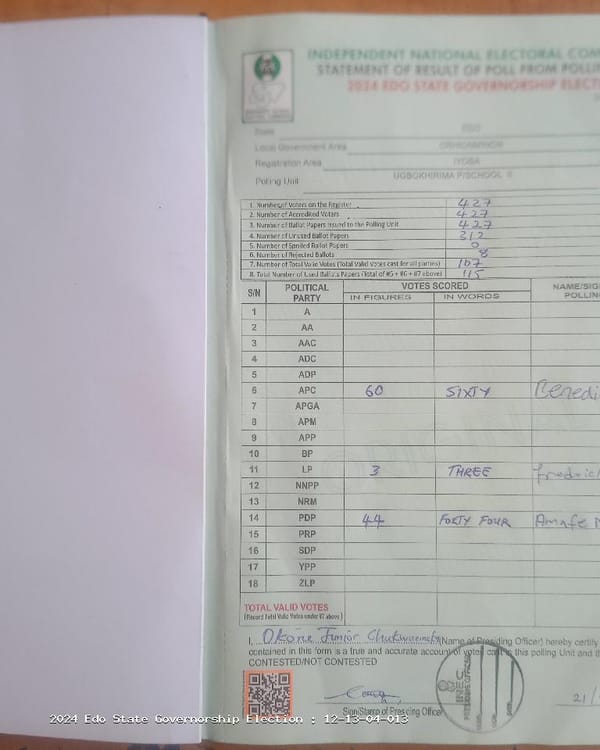 INDEPENDENT NATIONAL ELECTORAL COM
STATEMENT OF RESULT OF POLL FROM POLLIN
2024 EDO STATE GOVERNORSHIP ELECTI
State EDO
Local Government Area ORHIONMWON
Registration Area IYOBA
Polling Unit UGBOKHIRIMA P/SCHOOL II
1. Number of Voters on the Register 427
2. Number of Accredited Voters 427
3. Number of Ballot Papers Issued to the Polling Unit 427
4. Number of Unused Ballot Papers 312
5. Number of Spoiled Ballot Papers 0
6. Number of Rejected Ballots 8
7. Number of Total Valid Votes (Total Valid votes cast for all parties) 107
8. Total Number of Used Ballots Papers (Total of #5 + #6 + #7 above) 115
S/N POLITICAL PARTY VOTES SCORED NAME/SIG
IN FIGURES IN WORDS POLLIN
1 A
2 AA
3 AAC
4 ADC
5 ADP
6 APC 60 SIXTY Benedi
7 APGA
8 APM
9 APP
10 BP
11 LP 3 THREE fredric
12 NNPP
13 NRM
14 PDP 44 FORTY FOUR Amafe
15 PRP
16 SDP
17 YPP
18 ZLP
TOTAL VALID VOTES
(Record Total Valid Votes under #7 above)
I, Okorie Junior (Name of Presiding Officer) hereby certify
contained in this form is a true and accurate account of votes cast in this polling Unit and th
CONTESTED/NOT CONTESTED
Sign/Stamp of Presiding Officer
21/
INEC
2024 Edo State Governorship Election : 12-13-04-013